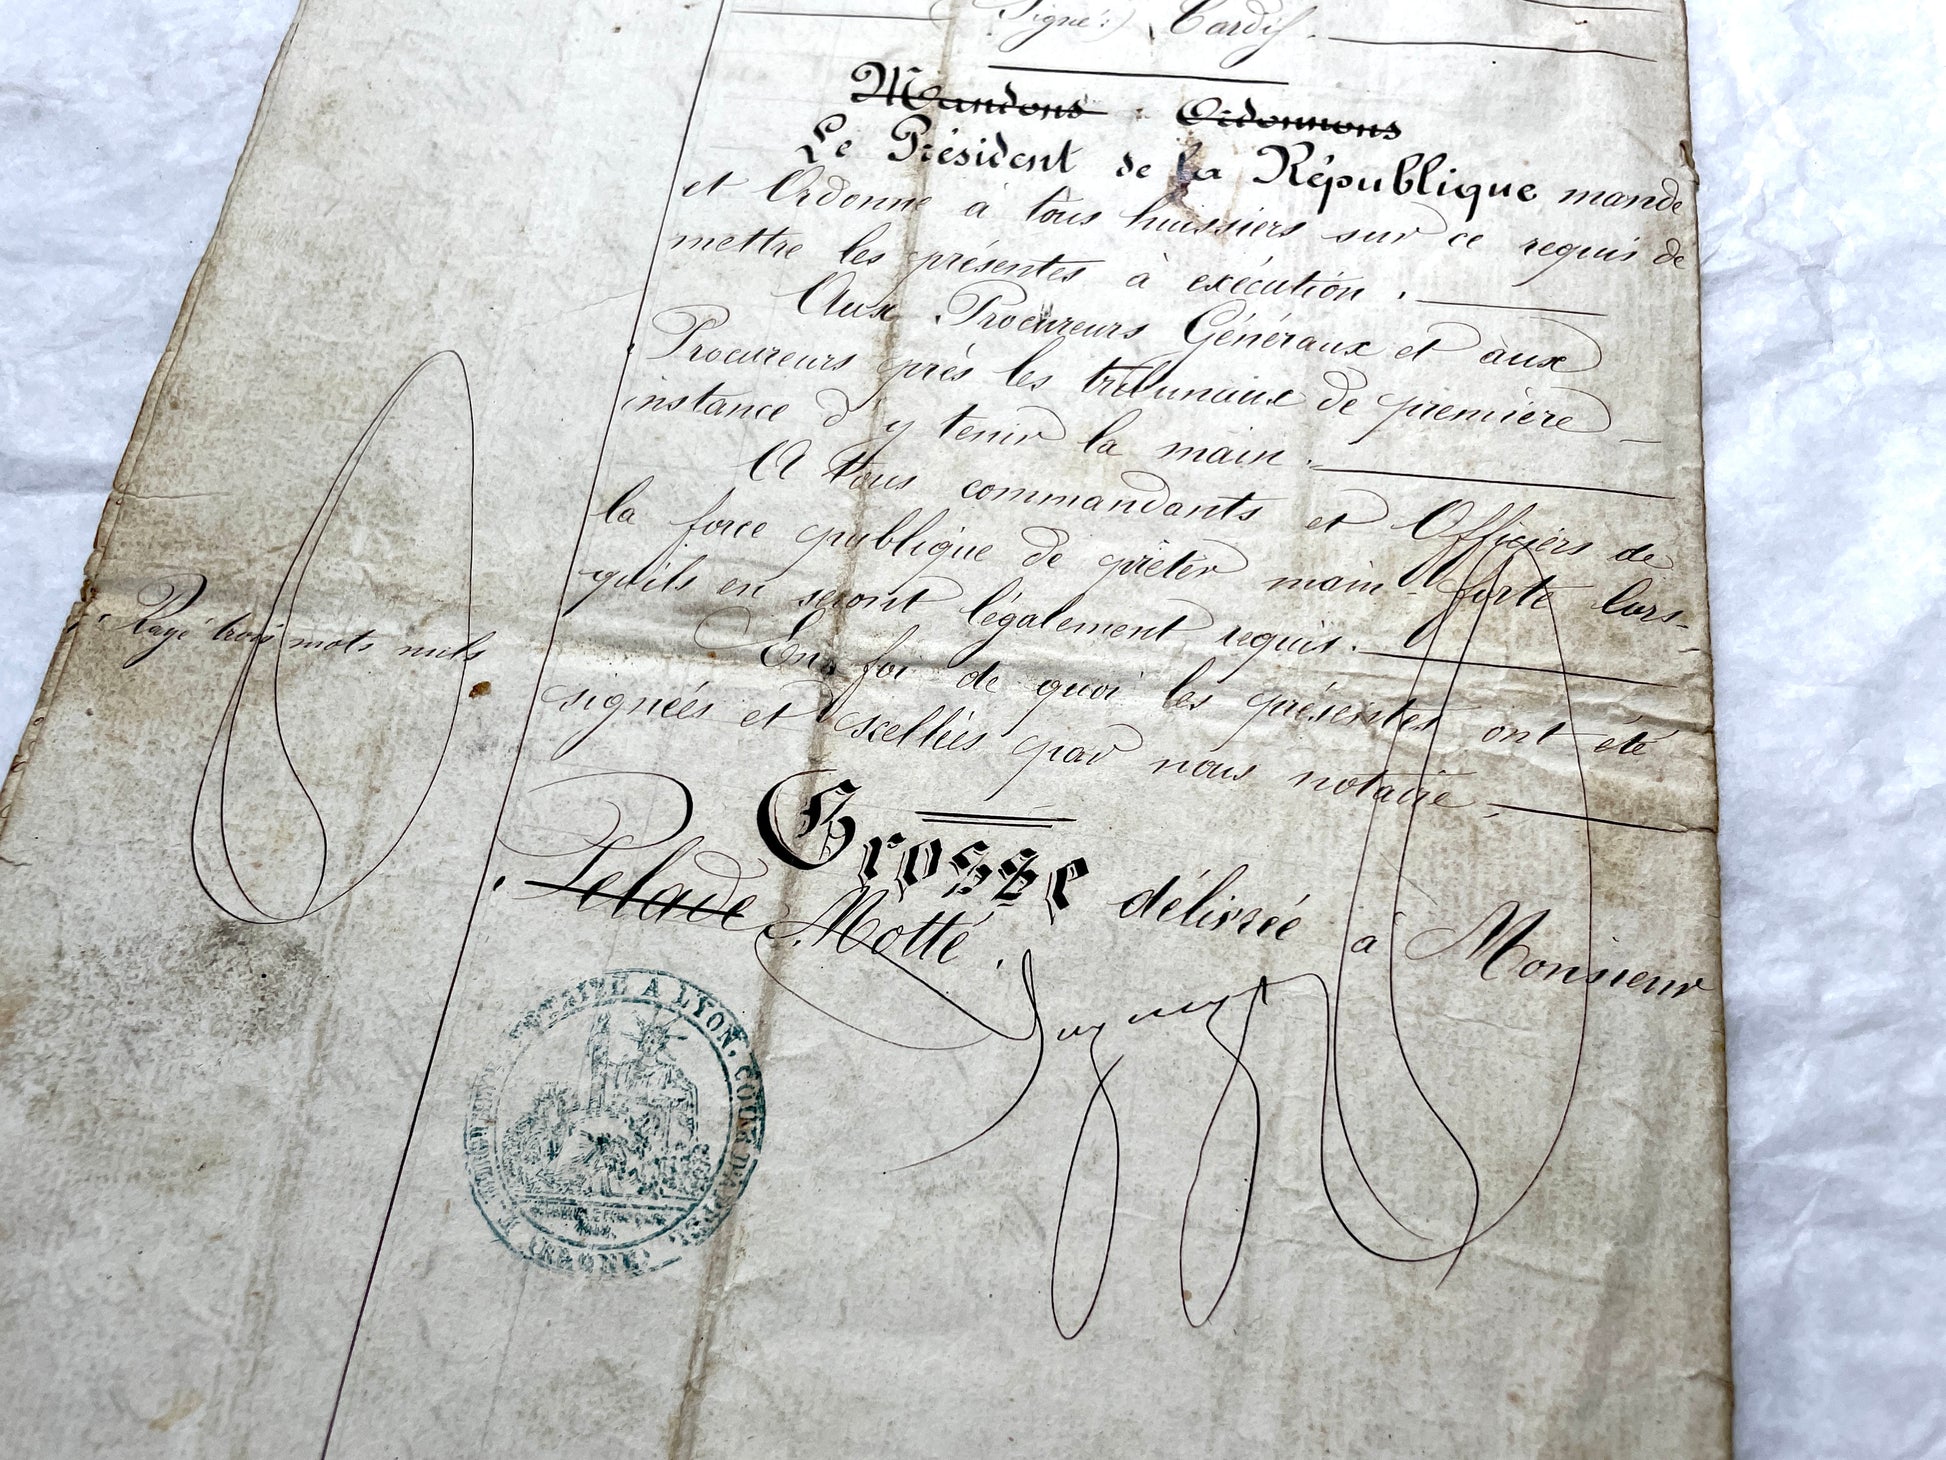 Signé: Cardif.
Mandons Ordonnons
Le Président de la République mande
et Ordonne à tous huissiers sur ce requis de
mettre les présentes à exécution.
Aux Procureurs Généraux et aux
Procureurs près les tribunaux de première
instance d'y tenir la main.
A tous commandants et Officiers de
la force publique de prêter main-forte lors-
qu'ils en seront légalement requis.
En foi de quoi les présentes ont été
signées et scellées par nous notaire
Rayé trois mots nuls
Grosse délivrée à Monsieur
Pelade Motté.
A LYON. COUR D'APPEL
(RHONE)